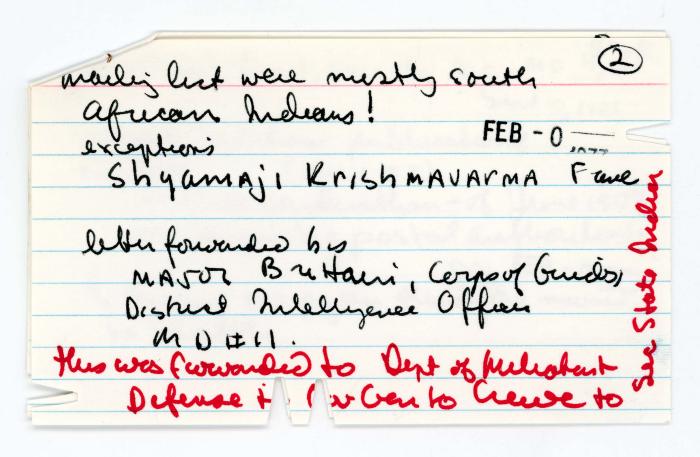 2
mailing list were mostly south
African Indians!
FEB - 0
exceptions
Shyamaji KrishMAVARMA
letter forwarded by
MAJOR Corps of Guides
District Intelligence Officer
M D # 11.
this was forwarded to Dept of
Defense to
Sec State Indian